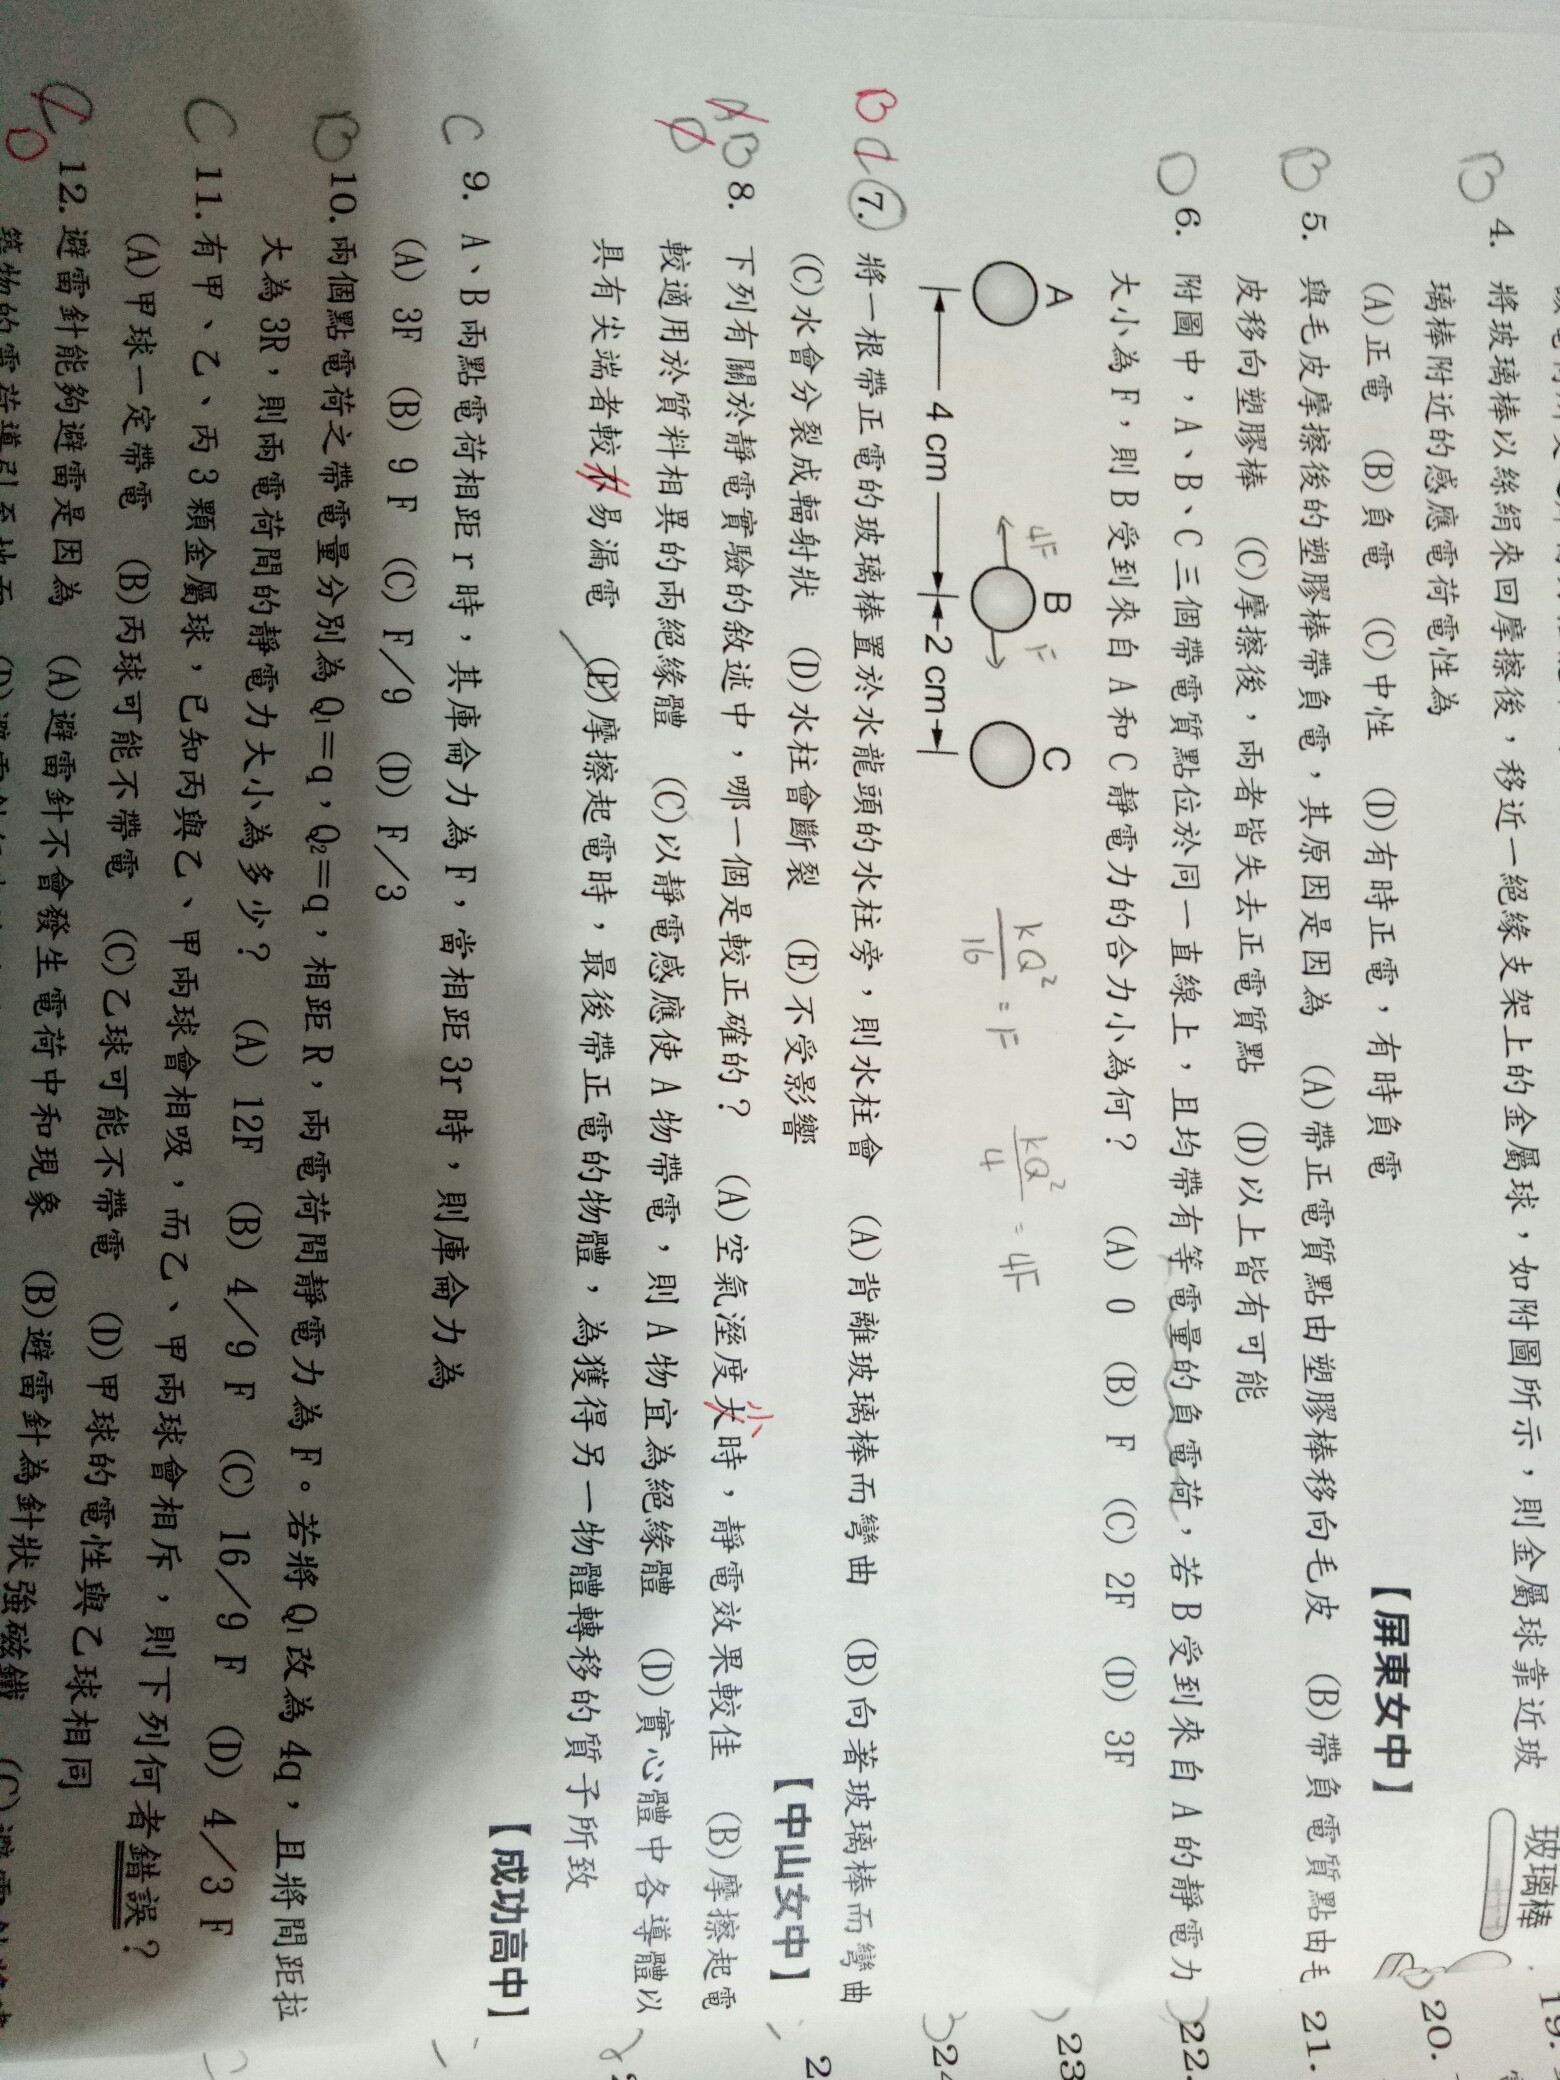 B 4. 將玻璃棒以絲絹來回摩擦後，移近一絕緣支架上的金屬球，如附圖所示，則金屬球靠近玻
璃棒附近的感應電荷電性為
(A)正電 (B)負電 (C)中性 (D)有時正電，有時負電
【屏東女中】
玻璃棒
B 5. 與毛皮摩擦後的塑膠棒帶負電，其原因是因為 (A)帶正電質點由塑膠棒移向毛皮 (B)帶負電質點由毛
皮移向塑膠棒 (C)摩擦後，兩者皆失去正電質點 (D)以上皆有可能
D 6. 附圖中，A、B、C三個帶電質點位於同一直線上，且均帶有等電量的負電荷，若B受到來自A的靜電力
大小為F，則B受到來自A和C靜電力的合力小為何？ (A) 0 (B) F (C) 2F (D) 3F
A B C
4F F
4 cm 2 cm
kQ²/16 = F kQ²/4 = 4F
B 7. 將一根帶正電的玻璃棒置於水龍頭的水柱旁，則水柱會 (A)背離玻璃棒而彎曲 (B)向著玻璃棒而彎曲
(C)水會分裂成輻射狀 (D)水柱會斷裂 (E)不受影響
【中山女中】
B 8. 下列有關於靜電實驗的敘述中，哪一個是較正確的？ (A)空氣溼度大時，靜電效果較佳 (B)摩擦起電
小
較適用於質料相異的兩絕緣體 (C)以靜電感應使A物帶電，則A物宜為絕緣體 (D)實心體中各導體以
具有尖端者較不易漏電 (E)摩擦起電時，最後帶正電的物體，為獲得另一物體轉移的質子所致
【成功高中】
C 9. A、B兩點電荷相距r時，其庫侖力為F，當相距3r時，則庫侖力為
(A) 3F (B) 9 F (C) F／9 (D) F／3
B 10. 兩個點電荷之帶電量分別為Q₁＝q，Q₂＝q，相距R，兩電荷間靜電力為F。若將Q₁改為4q，且將間距拉
大為3R，則兩電荷間的靜電力大小為多少？ (A) 12F (B) 4／9 F (C) 16／9 F (D) 4／3 F
C 11. 有甲、乙、丙3顆金屬球，已知丙與乙、甲兩球會相吸，而乙、甲兩球會相斥，則下列何者錯誤？
(A)甲球一定帶電 (B)丙球可能不帶電 (C)乙球可能不帶電 (D)甲球的電性與乙球相同
D 12. 避雷針能夠避雷是因為 (A)避雷針不會發生電荷中和現象 (B)避雷針為針狀強磁鐵
築物的電荷導引至地面
19.
20.
21.
22.
23
24
2